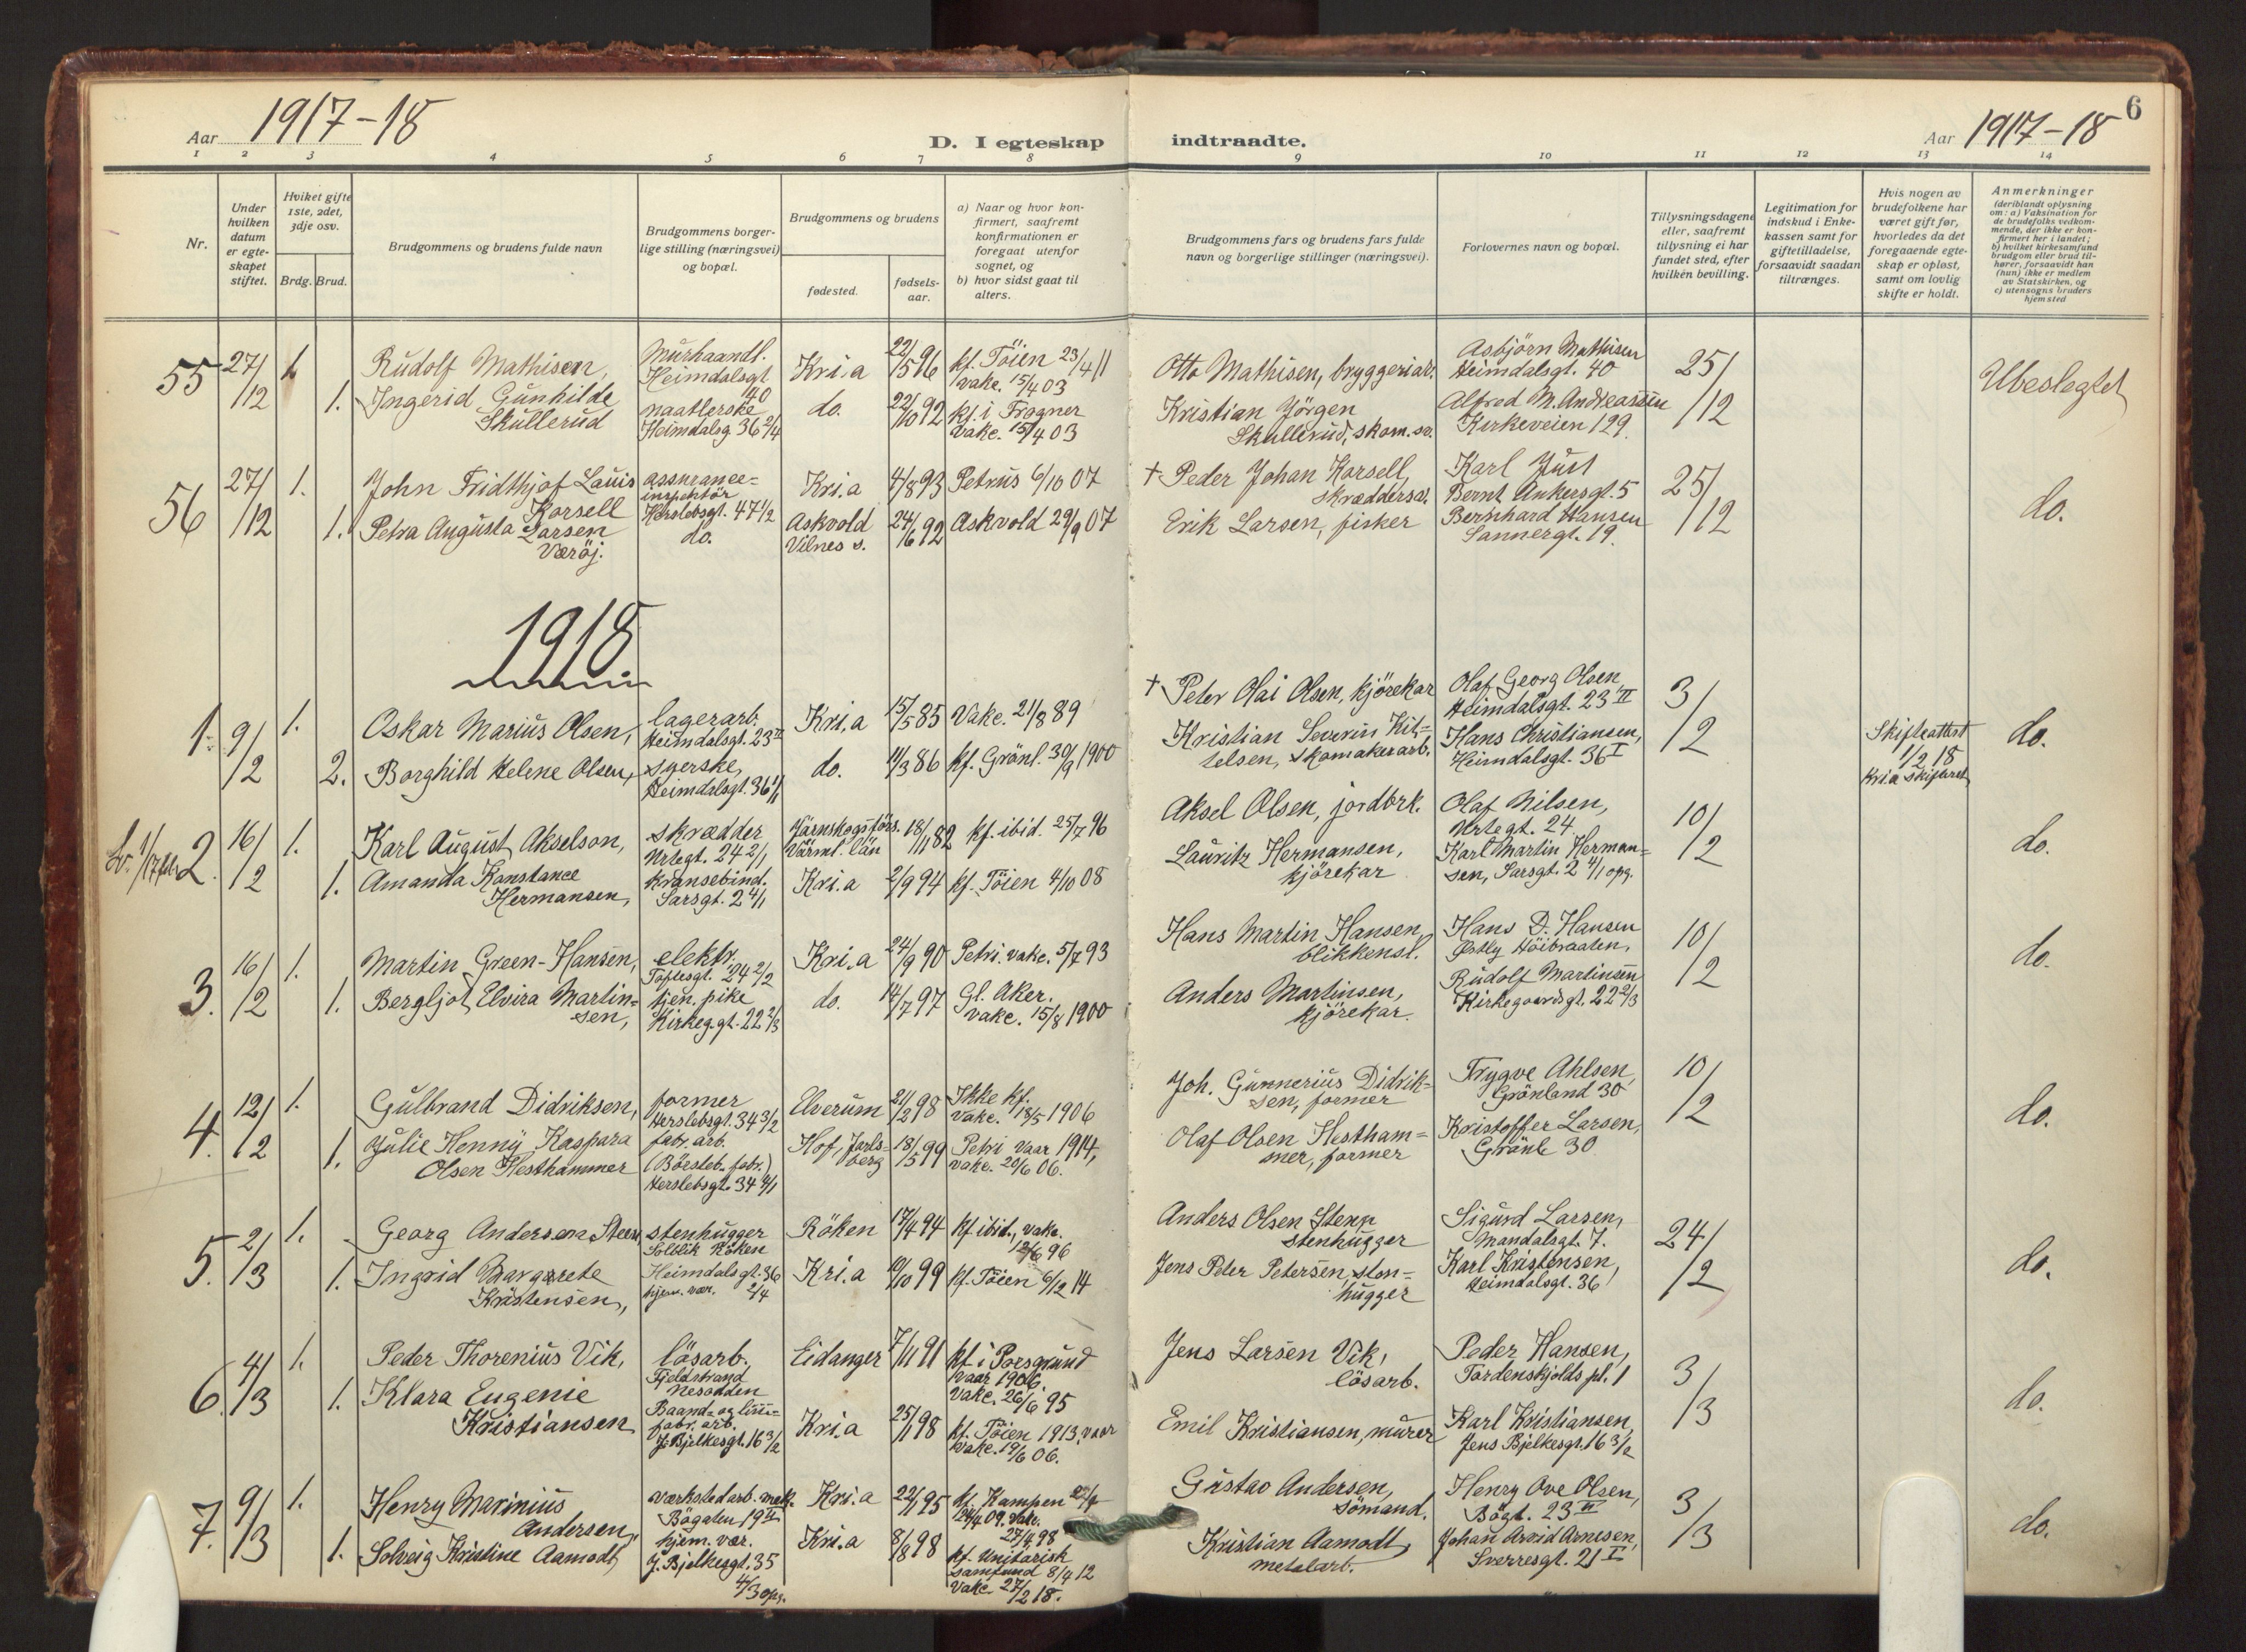 Aar 1917-18
D. I egteskap
indtraadte.
Aar 1917-18
6
1 2 3 4 5 6 7 8 9 10 11 12 13 14
Nr.
Under
hvilken
datum
er egte-
skapet
stiftet.
Hviket gifte
1ste, 2det,
3dje osv.
Brdg. Brud.
Brudgommens og brudens fulde navn
Brudgommens borger-
lige stilling (næringsvei)
og bopæl.
Brudgommens og brudens
fødested.
fødsels-
aar.
a) Naar og hvor kon-
firmert, saafremt
konfirmationen er
foregaat utenfor
sognet, og
b) hvor sidst gaat til
alters.
Brudgommens fars og brudens fars fulde
navn og borgerlige stillinger (næringsvei).
Forlovernes navn og bopæl.
Tillysningsdagene
eller, saafremt
tillysning ei har
fundet sted, efter
hvilken bevilling.
Legitimation for
indskud i Enke-
kassen samt for
giftetilladelse,
forsaavidt saadan
tiltrænges.
Hvis nogen av
brudefolkene har
været gift før,
hvorledes da det
foregaaende egte-
skap er opløst,
samt om lovlig
skifte er holdt.
Anmerkninger
(deriblandt oplysning
om: a) Vaksination for
de brudefolks vedkom-
mende, der ikke er kon-
firmert her i landet;
b) hvilket kirkesamfund
brudgom eller brud til-
hører, forsaavidt han
(hun) ikke er medlem
av Statskirken, og
c) utensogns bruders
hjemsted
55 27/12 1. 1.
Rudolf Mathisen,
Ingerid Gunhilde
Skullerud
Murhaandl.
Heimdalsgt
40
naatlerske
Heimdalsg 36 2/4
Kri.a
do.
22/5 96
22/10 92
kf. Töien 23/4 11
vakc. 15/4 03
kf. i Frogner
vakc. 15/4 03
Otto Mathisen, bryggeriar.
Kristian Jörgen
Skullerud, skom.sv.
Asbjörn Mathisen
Heimdalsgt. 40
Alfred M. Andreassen
Kirkeveien 129.
25/12
Ubeslegtet
56 27/12 1. 1.
John Fridthjof Lauis
Korsell
Petra Augusta Larsen
Væröj.
assurance-
inspektör
Herslebsgt. 47 1/2
do.
Kri.a
Askvold
Vilnes s.
4/8 93
24/6 92
Petrus 6/10 07
Askvold 29/9 07
+ Peder Johan Korsell,
skræddersv.
Erik Larsen, fisker
Karl Just
Bernt Ankersgt. 5
Bernhard Hansen
Sannergt. 19.
25/12
do.
1918.
1. 9/2 1. 2.
Oskar Marius Olsen,
Borghild Helene Olsen,
lagerarb.
Heimdalsgt. 23 II
syerske,
Heimdalsgt. 36 1/1
Kri.a
do.
15/5 85
11/3 86
Vakc. 21/8 89
kf. Grönl. 30/9 1900
+ Peter Olai Olsen, kjörekar
Kristian Severin Kit-
telsen, skomakerarb.
Olaf Georg Olsen,
Heimdalsgt. 23 II
Hans Christiansen,
Heimdalsgt. 36 I
3/2
Skifteattest
1/2 18
Kri.a skifteret
do.
2. 16/2 1. 1.
Karl August Akselson,
Amanda Konstance
Hermansen,
skrædder
Urtegt. 24 2/1
kransebind.
Sarsgt. 2 4/1
Järnskogs förs.
Värml. län
Kri.a
18/11 82
2/9 94
kf. ibid. 25/7 96
kf. Töien 4/10 08
Aksel Olsen, jordbrk.
Lauritz Hermansen,
kjörekar
Olaf Nilsen,
Urtegt. 24
Karl Martin Herman-
sen, Sarsgt. 2 4/1 opg.
10/2
do.
3. 16/2 1. 1.
Martin Green-Hansen,
Bergljot Elvira Martin-
sen,
elektr.
Toftesgt. 24 2/2
tjen. pike
Kirkeg.gt. 22 2/3
Kri.a
do.
24/9 90
14/7 97
Petri. vakc. 5/7 93
Gl. Aker.
vakc. 15/8 1900
Hans Martin Hansen,
blikkensl.
Anders Martinsen,
kjörekar.
Hans D. Hansen
Østby Höibraaten,
Rudolf Martinsen
Kirkegaardsgt. 22 2/3
10/2
do.
4. 12/2 1. 1.
Gulbrand Didriksen,
Julie Henny Kaspara
Olsen Hesthammer
former
Herslebsgt. 34 3/2
fabr. arb.
(Börsteb. fabr.)
Herslebsgt. 34 4/1
Elverum
Hof, Jarls-
berg
21/2 98
18/5 99
Ikke kf.
vakc. 18/5 1906
Petri vaar 1914,
vakc. 20/6 06.
Joh. Gunnerius Didrik-
sen, former
Olaf Olsen Hestham-
mer, former
Trygve Ahlsen,
Grönland 30
Kristoffer Larsen,
Grönl. 30
10/2
do.
5. 2/3 1. 1.
Georg Andersen Steen
Ingrid Margrete
Kristensen,
stenhugger
Solblik Röken
Heimdalsgt. 36
hjem. vær. 2/4
Röken
Kri.a
17/4 94
10/10 99
kf ibid., vakc.
12/6 96
kf. Töien 6/12 14
Anders Olsen Steen
stenhugger
Jens Peter Petersen, sten-
hugger
Sigurd Larsen,
Mandalsgt. 7.
Karl Kristensen,
Heimdalsgt. 36
24/2
do.
6. 4/3 1. 1.
Peder Thorenius Vik,
Klara Eugenie
Kristiansen
lösarb.,
Fjeldstrand
Nesodden
Baand- og lim-
fabr. arb.
J. Bjelkesgt. 16 3/2
Eidanger
Kri.a
7/11 91
25/1 98
kf. i Porsgrund
vaar 1906
vakc. 26/6 95
kf. Töien 1913, vaar
vakc. 19/6 06.
Jens Larsen Vik,
lösarb.
Emil Kristiansen, murer
Peder Hansen,
Tordenskjolds pl. 1
Karl Kristiansen,
Jens Bjelkesgt. 16 3/2
3/3
do.
7. 9/3 1. 1.
Henry Marinius
Andersen,
Solveig Kristine Aamodt,
værkstedarb. mek.
Bögaten 19 II
hjem. vær.
J. Bjelkesgt. 35
4/3 opg.
Kri.a
Kri.a
22/1 95
8/8 98
kf. Kampen
24/4 09. Vakc.
27/4 98
kf. Unitarisk
samfund 8/4 12
Vakc. 27/2 18.
Gustav Andersen,
sömand.
Kristian Aamodt,
metalarb.
Henry Ove Olsen,
Bögt. 23 II
Johan Arvid Arnesen,
Sverresgt. 21 I
3/3
do.